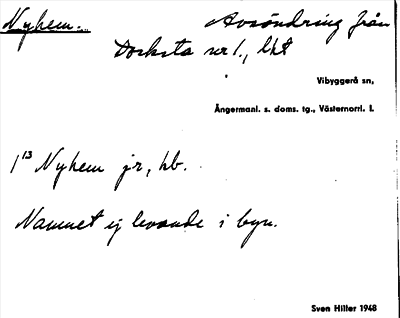 Nyhem... Avsöndring från
Docksta nr 1., lht
Vibyggerå sn,
Ångermanl. s. doms. tg., Västernorrl. l.
1¹³ Nyhem jr, hb.
Namnet ej levande i byn.
Sven Hiller 1948